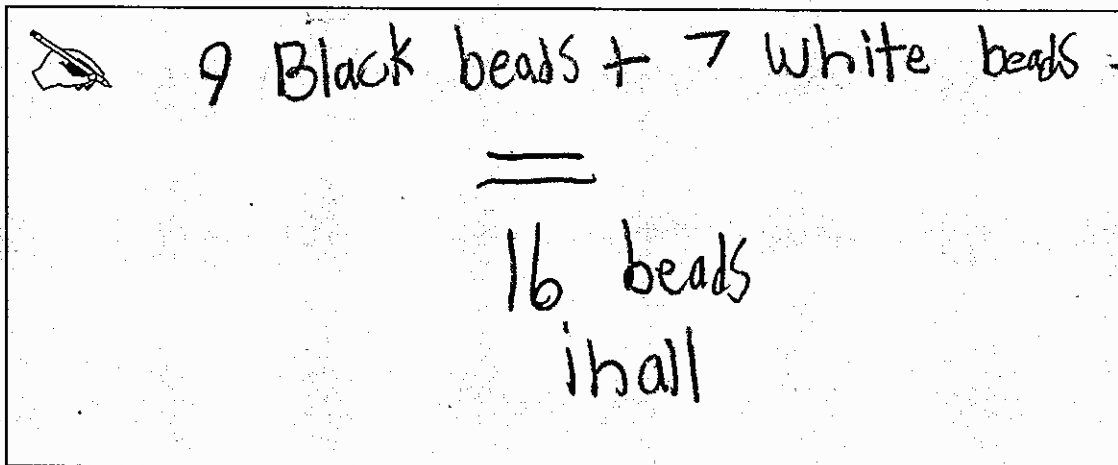 9 Black beads + 7 White beads -
=
16 beads
inall